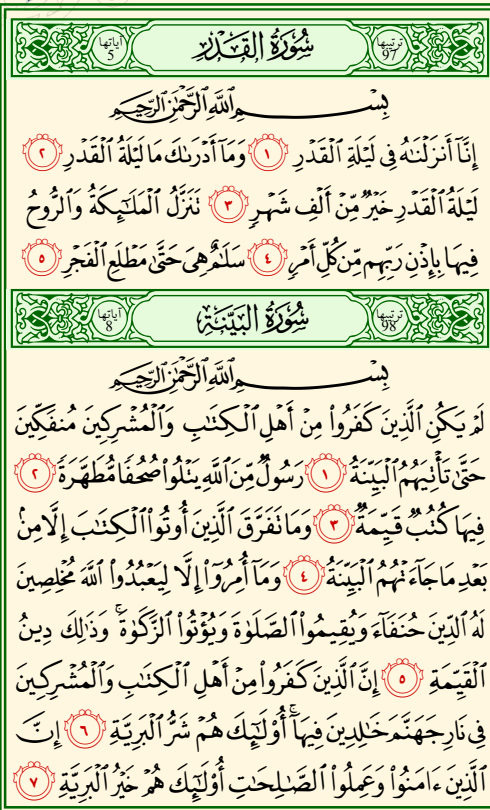 ترتيبها 97 سُورَةُ القَدْرِ آياتها 5
بِسْمِ ٱللَّهِ ٱلرَّحْمَٰنِ ٱلرَّحِيمِ
إِنَّآ أَنزَلْنَٰهُ فِى لَيْلَةِ ٱلْقَدْرِ ١ وَمَآ أَدْرَىٰكَ مَا لَيْلَةُ ٱلْقَدْرِ ٢
لَيْلَةُ ٱلْقَدْرِ خَيْرٌ مِّنْ أَلْفِ شَهْرٍ ٣ تَنَزَّلُ ٱلْمَلَٰٓئِكَةُ وَٱلرُّوحُ
فِيهَا بِإِذْنِ رَبِّهِم مِّن كُلِّ أَمْرٍ ٤ سَلَٰمٌ هِىَ حَتَّىٰ مَطْلَعِ ٱلْفَجْرِ ٥
ترتيبها 98 سُورَةُ البَيِّنَةِ آياتها 8
بِسْمِ ٱللَّهِ ٱلرَّحْمَٰنِ ٱلرَّحِيمِ
لَمْ يَكُنِ ٱلَّذِينَ كَفَرُوا۟ مِنْ أَهْلِ ٱلْكِتَٰبِ وَٱلْمُشْرِكِينَ مُنفَكِّينَ
حَتَّىٰ تَأْتِيَهُمُ ٱلْبَيِّنَةُ ١ رَسُولٌ مِّنَ ٱللَّهِ يَتْلُوا۟ صُحُفًا مُّطَهَّرَةً ٢
فِيهَا كُتُبٌ قَيِّمَةٌ ٣ وَمَا تَفَرَّقَ ٱلَّذِينَ أُوتُوا۟ ٱلْكِتَٰبَ إِلَّا مِنۢ
بَعْدِ مَا جَآءَتْهُمُ ٱلْبَيِّنَةُ ٤ وَمَآ أُمِرُوٓا۟ إِلَّا لِيَعْبُدُوا۟ ٱللَّهَ مُخْلِصِينَ
لَهُ ٱلدِّينَ حُنَفَآءَ وَيُقِيمُوا۟ ٱلصَّلَوٰةَ وَيُؤْتُوا۟ ٱلزَّكَوٰةَ ۚ وَذَٰلِكَ دِينُ
ٱلْقَيِّمَةِ ٥ إِنَّ ٱلَّذِينَ كَفَرُوا۟ مِنْ أَهْلِ ٱلْكِتَٰبِ وَٱلْمُشْرِكِينَ
فِى نَارِ جَهَنَّمَ خَٰلِدِينَ فِيهَآ ۚ أُو۟لَٰٓئِكَ هُمْ شَرُّ ٱلْبَرِيَّةِ ٦ إِنَّ
ٱلَّذِينَ ءَامَنُوا۟ وَعَمِلُوا۟ ٱلصَّٰلِحَٰتِ أُو۟لَٰٓئِكَ هُمْ خَيْرُ ٱلْبَرِيَّةِ ٧